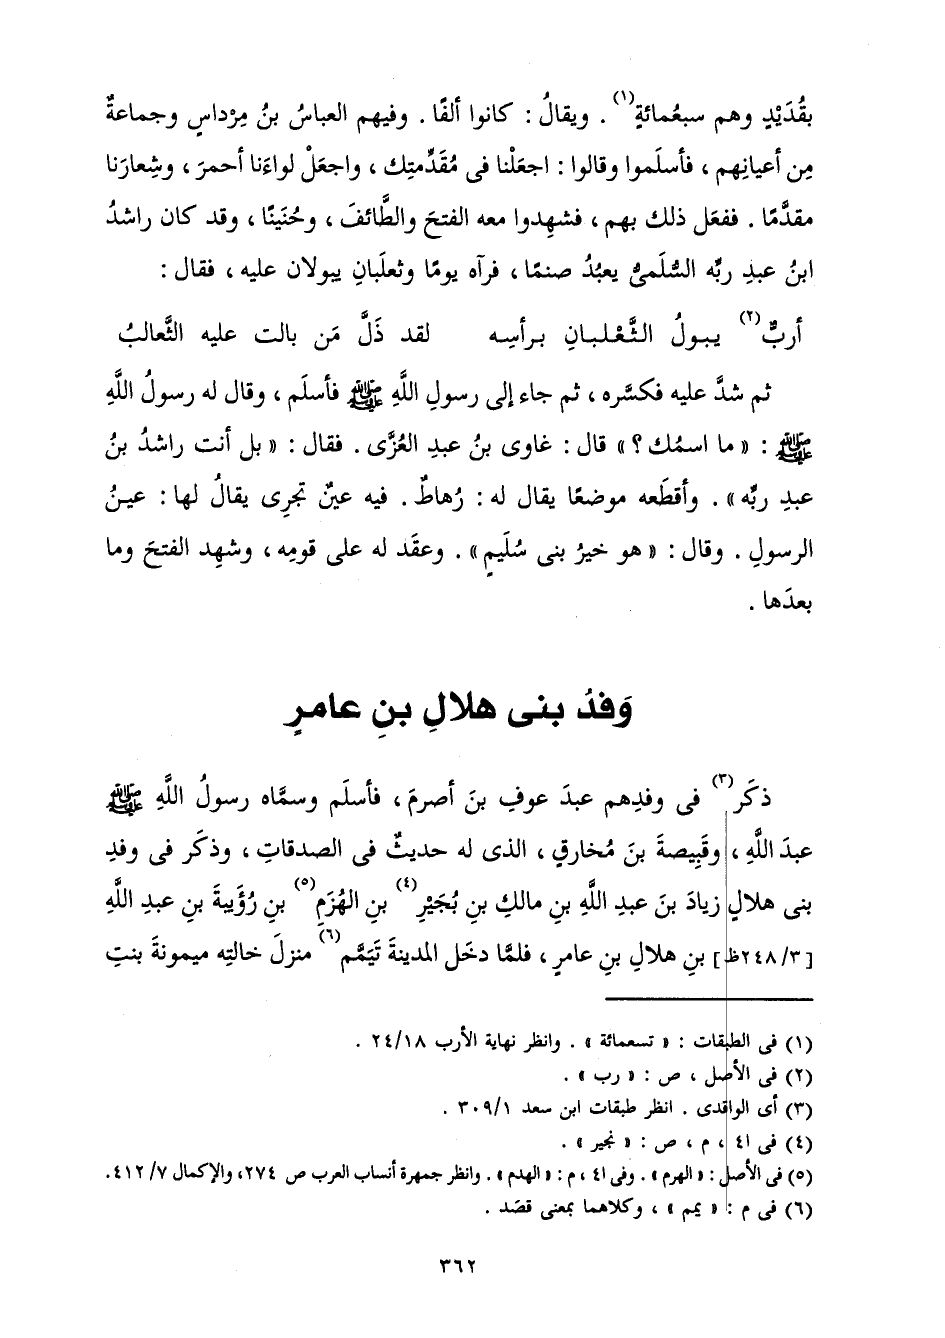 بقُدَيْدٍ وهم سبعُمائةٍ(١) . ويقالُ : كانوا ألفًا . وفيهم العباسُ بنُ مِرْداسٍ وجماعةٌ
مِن أعيانِهم ، فأسلَموا وقالوا : اجعَلْنا فى مُقَدِّمتِك ، واجعَلْ لواءَنا أحمرَ ، وشِعارَنا
مقدَّمًا . ففعَل ذلك بهم ، فشهِدوا معه الفتحَ والطَّائفَ ، وحُنَينًا ، وقد كان راشدُ
ابنُ عبدِ ربِّه السُّلَمىُّ يعبُدُ صنمًا ، فرآه يومًا وثعلَبانِ يبولان عليه ، فقال :
أربٌّ(٢) يبولُ الثَّعْلبانِ برأسِه لقد ذَلَّ مَن بالت عليه الثَّعالبُ
ثم شدَّ عليه فكسَّره ، ثم جاء إلى رسولِ اللَّهِ ﷺ فأسلَم ، وقال له رسولُ اللَّهِ
ﷺ : « ما اسمُك ؟ » قال : غاوى بنُ عبدِ العُزَّى . فقال : « بل أنت راشدُ بنُ
عبدِ ربِّه » . وأقطَعه موضعًا يقال له : رُهاطٌ . فيه عينٌ تجرِى يقالُ لها : عينُ
الرسولِ . وقال : « هو خيرُ بنى سُلَيمٍ » . وعقَد له على قومِه ، وشهِد الفتحَ وما
بعدَها .
وَفدُ بنى هلالِ بنِ عامرٍ
ذكَر(٣) فى وفدِهم عبدَ عوفِ بنَ أصرمَ ، فأسلَم وسمَّاه رسولُ اللَّهِ ﷺ
عبدَ اللَّهِ ، وقَبِيصةَ بنَ مُخارقٍ ، الذى له حديثٌ فى الصدقاتِ ، وذكَر فى وفدِ
بنى هلالٍ زيادَ بنَ عبدِ اللَّهِ بنِ مالكِ بنِ بُجَيْرِ(٤) بنِ الهُزَمِ(٥) بنِ رُؤَيبةَ بنِ عبدِ اللَّهِ
[٢٤٨/٣ظ] بنِ هلالِ بنِ عامرٍ ، فلمَّا دخَل المدينةَ تَيَمَّم(٦) منزلَ خالتِه ميمونةَ بنتِ
(١) فى الطبقات : « تسعمائة » . وانظر نهاية الأرب ٢٤/١٨ .
(٢) فى الأصل ، ص : « رب » .
(٣) أى الواقدى . انظر طبقات ابن سعد ٣٠٩/١ .
(٤) فى ٤١ ، م ، ص : « نجير » .
(٥) فى الأصل : « الهرم » . وفى ٤١ ، م : « الهدم » . وانظر جمهرة أنساب العرب ص ٢٧٤، والإكمال ٤١٢/٧.
(٦) فى م : « يمم » ، وكلاهما بمعنى قصَد .
٣٦٢